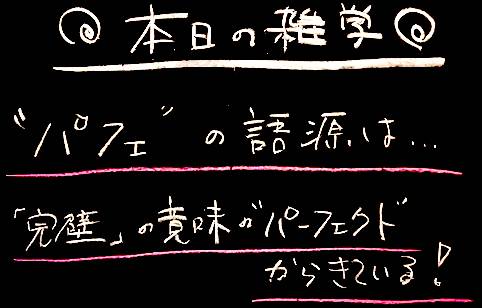 本日の雑学
“パフェ”の語源は...
「完璧」の意味の“パーフェクト”
からきている!